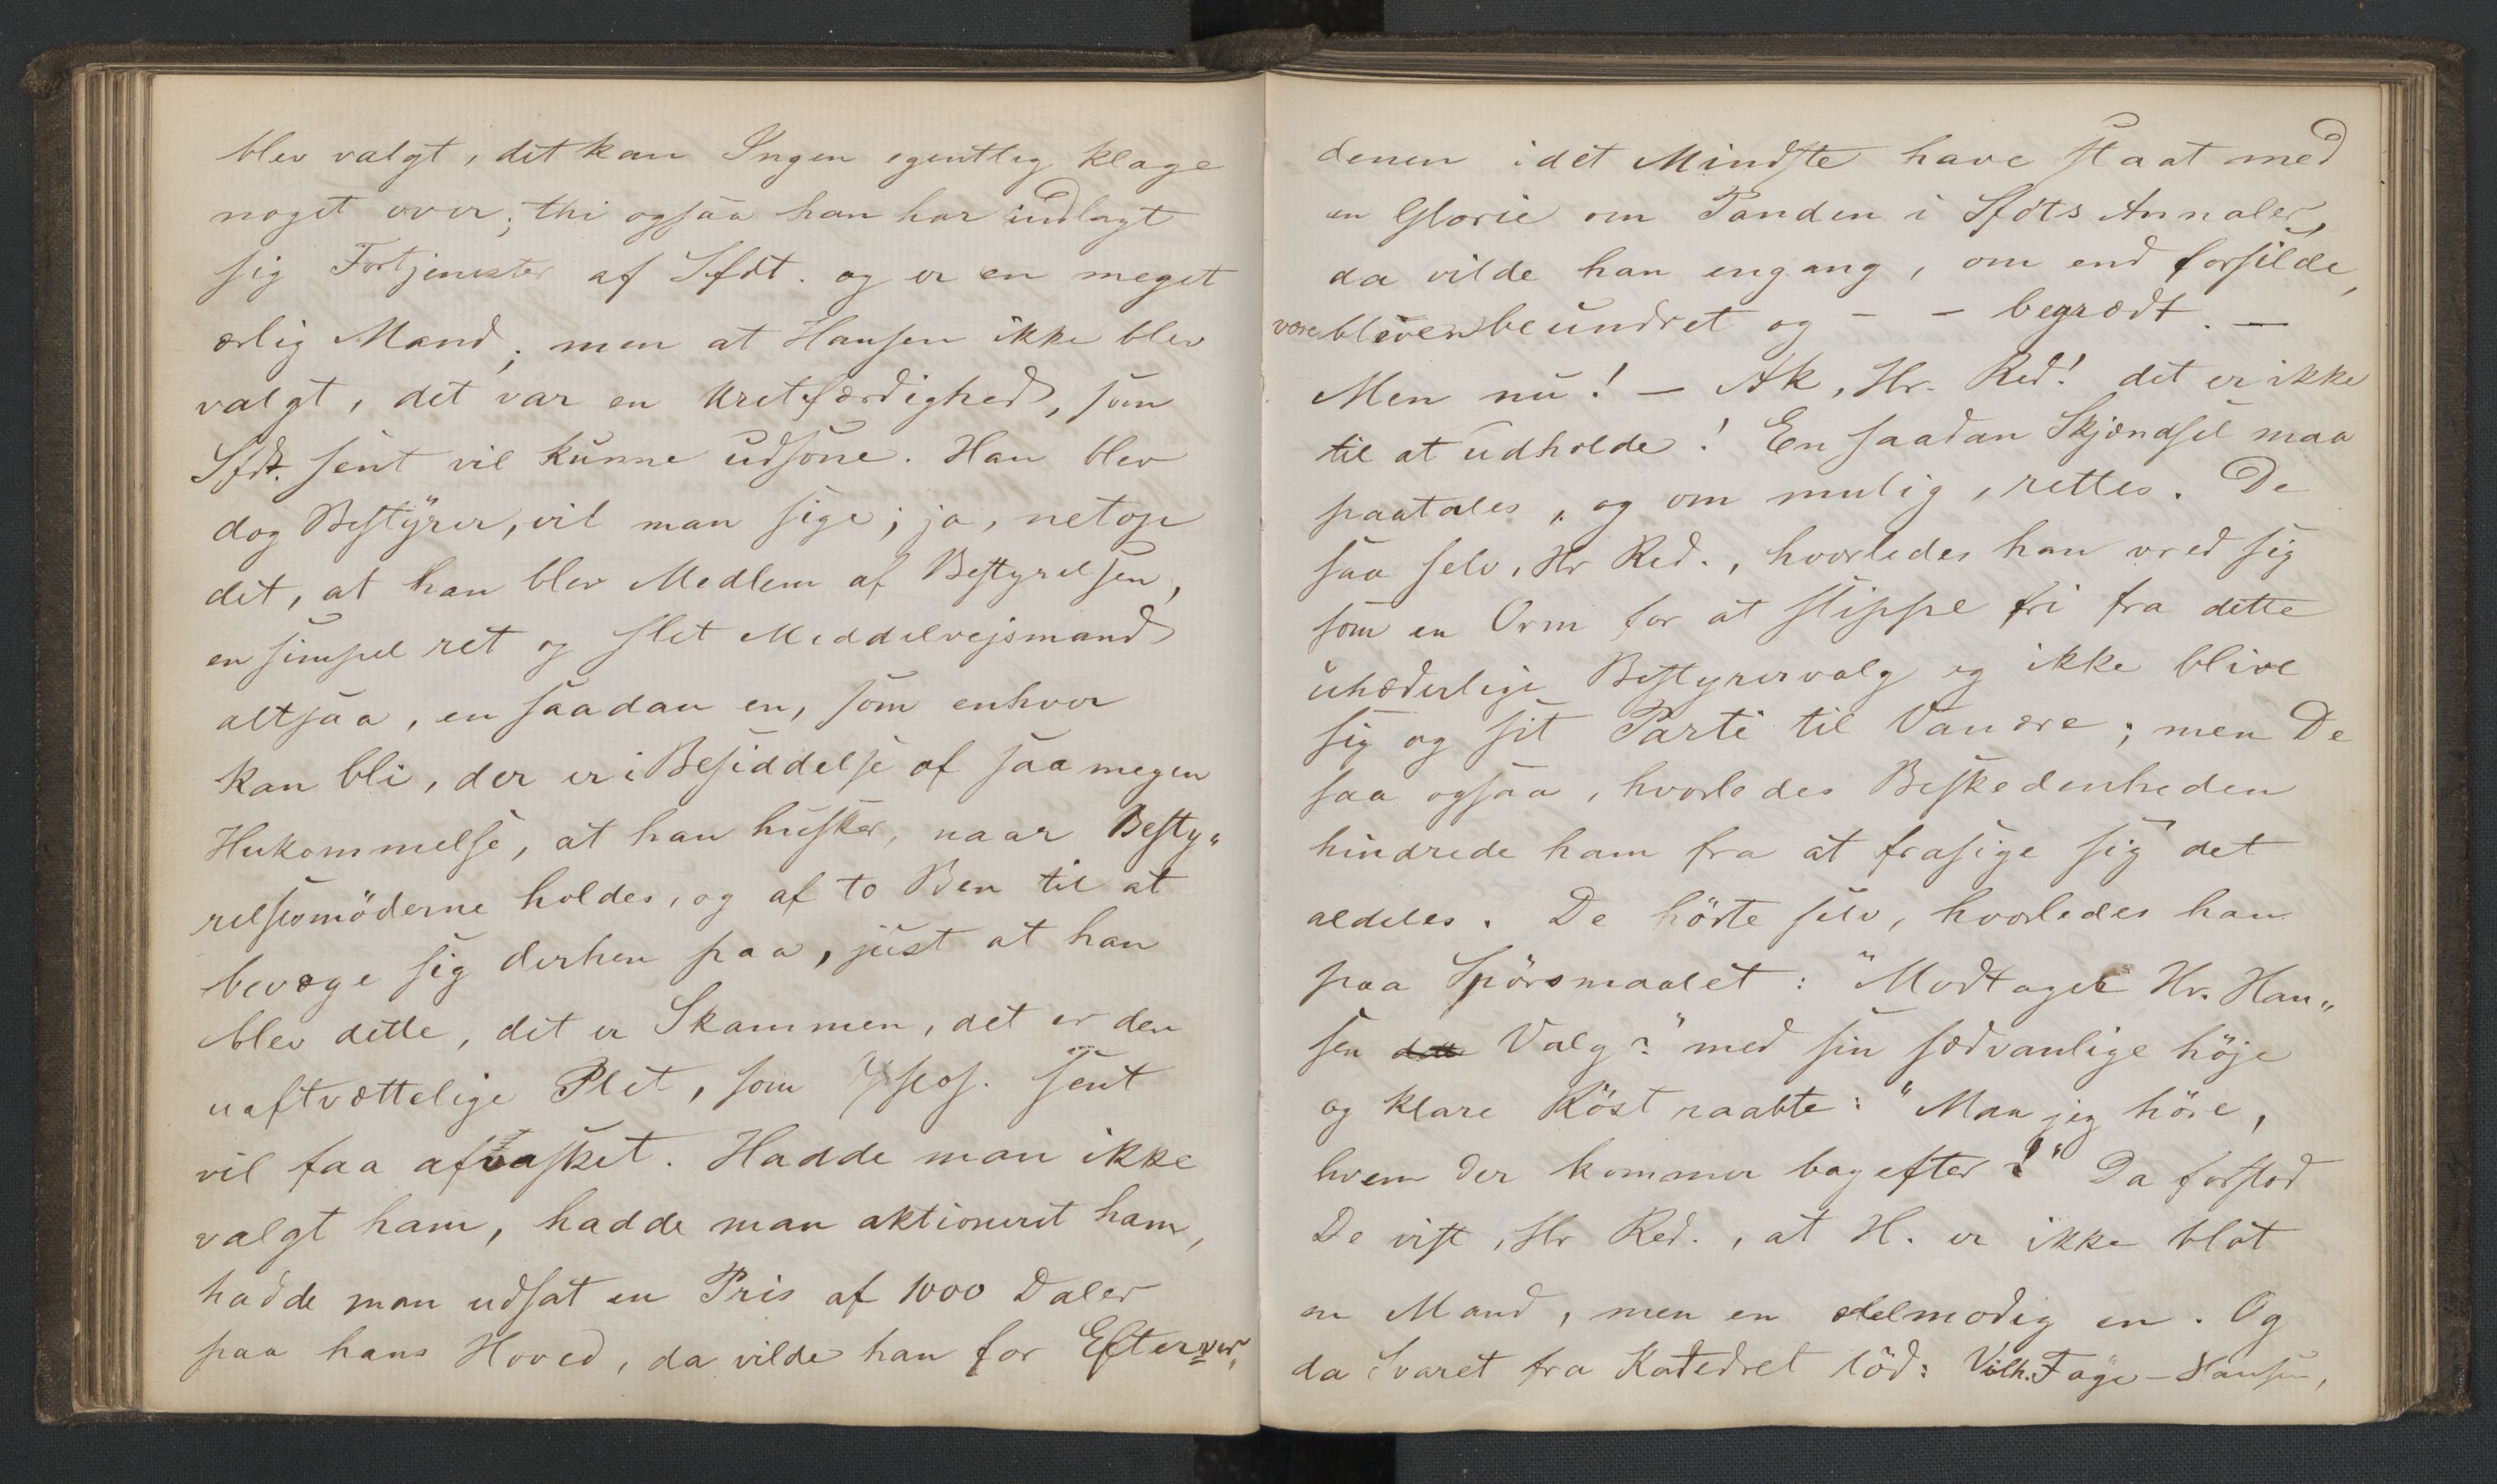 blev valgt, det kan Ingen egentlig klage
noget over; thi ogsaa han har indlagt
sig Fortjenester af Sfdt. og er en meget
ærlig Mand; men at Hansen ikke blev
valgt, det var en Uretfærdighed, som
Sfdt. sent vil kunne udsone. Han blev
dog Bestyrer, vil man sige; ja, netop
det, at han blev Medlem af Bestyrelsen,
en simpel ret og slet Middelvejsmand
altsaa, en saadan en, som enhver
kan bli, der er i Besiddelse af saa megen
Hukommelse, at han husker, naar Besty„
relsesmöderne holdes, og af to Ben til at
bevæge sig derhen paa, just at han
blev dette, det er Skammen, det er den
uaftvættelige Plet, som sent
vil faa afvasket. Hadde man ikke
valgt ham, hadde man aktioneret ham,
hadde man udsat en Pris af 1000 Daler
paa hans Hoved, da vilde han for Efterver„
denen i det Mindste have staat med
en Glorie om Panden i Sfdts Annaler,
da vilde han engang, om end forsilde,
være bleven beundret og – – begrædt. –
Men nu! – Ak, Hr. Red! det er ikke
til at udholde! En saadan Skjændsel maa
paatales, og om mulig, rettes. De
saa selv, Hr Red., hvorledes han vred sig
som en Orm for at slippe fri fra dette
uhæderlige Bestyrervalg og ikke blive
sig og sit Parti til Vanære; men De
saa ogsaa, hvorledes Beskedenheden
hindrede ham fra at frasige sig det
aldeles. De hörte selv, hvorledes han
paa Spörsmaalet: "Modtager Hr. Han„
sen dette Valg?" med sin sædvanlige höje
og klare Röst raabte: "Maa jeg höre,
hvem der kommer bagefter?" Da forstod
De vist, Hr Red., at H. er ikke blot
en Mand, men en ædelmodig en. Og
da Svaret fra Katedret löd: Vilh. Faye-Hansen,